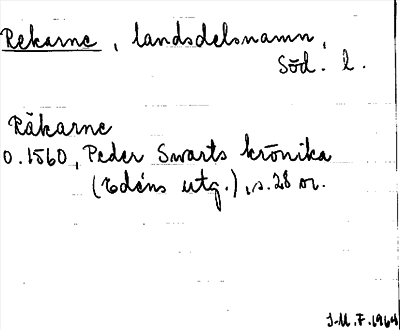 Rekarne, landsdelsnamn,
Söd. l.
Räkarne
O. 1560, Peder Swarts krönika
(Edéns utg.), s. 28 m.
J-M. F. 1964